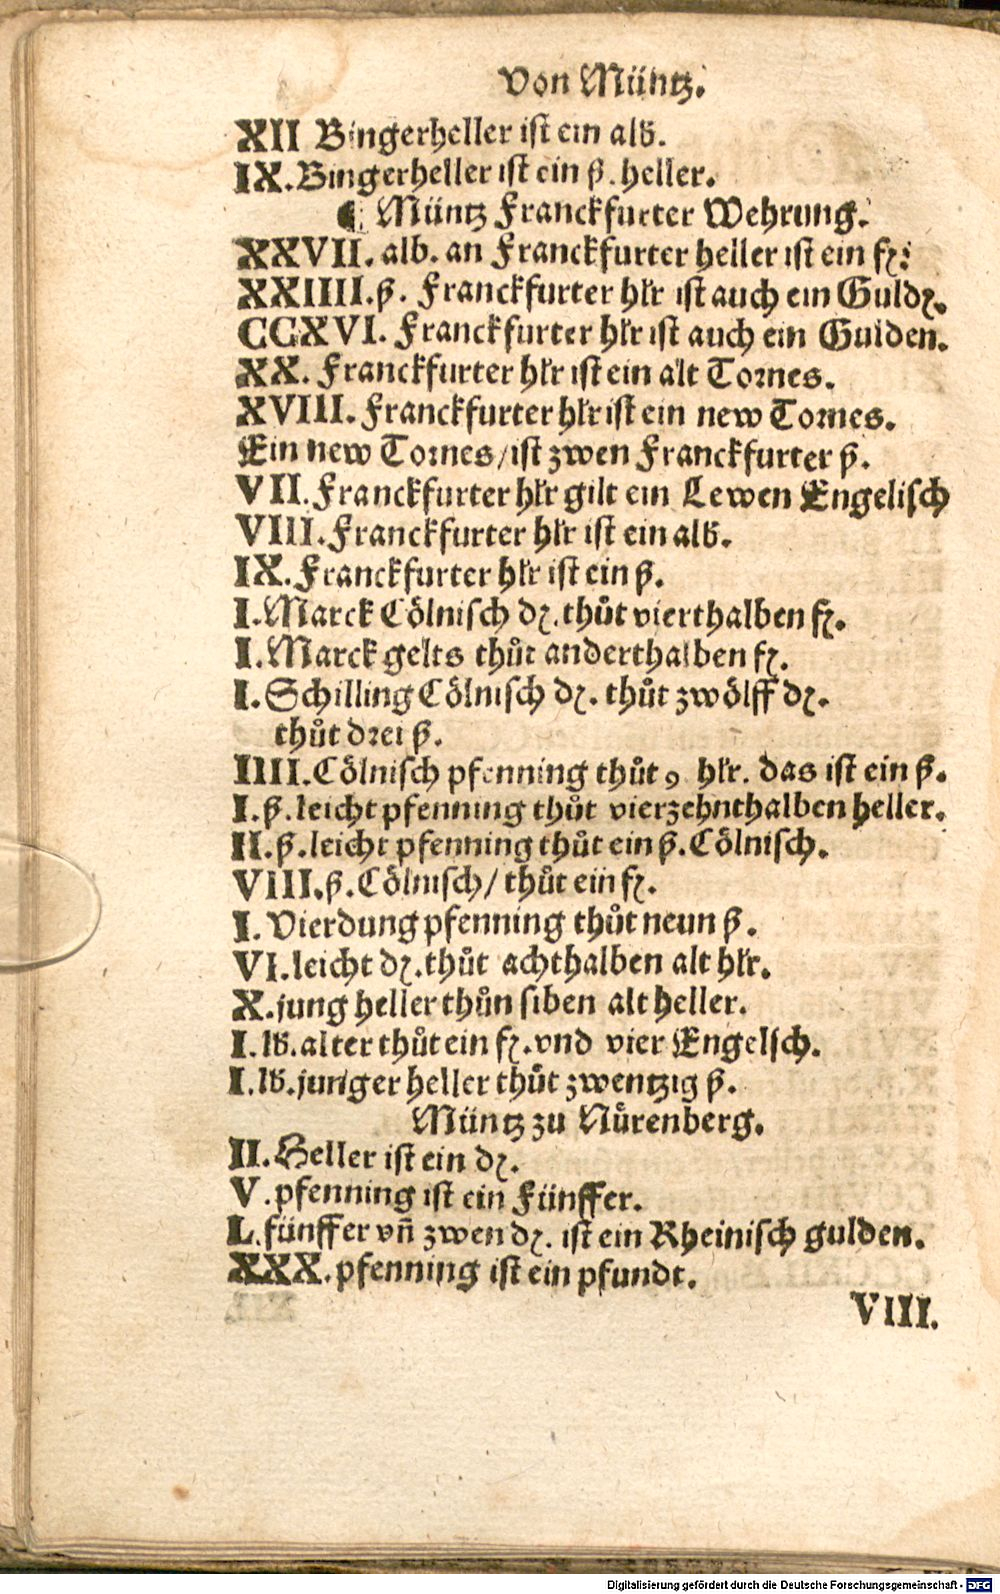 Von Müntz.
XII Bingerheller ist ein alb.
IX. Bingerheller ist ein ß. heller.
Müntz Franckfurter Wehrung.
XXVII. alb. an Franckfurter heller ist ein fl:
XXIIII. ß. Franckfurter hlr ist auch ein Guldē.
CCXVI. Franckfurter hlr ist auch ein Gulden.
XX. Franckfurter hlr ist ein alt Tornes.
XVIII. Franckfurter hlr ist ein new Tornes.
Ein new Tornes/ ist zwen Franckfurter ß.
VII. Franckfurter hlr gilt ein Lewen Engelisch
VIII. Franckfurter hlr ist ein alb.
IX. Franckfurter hlr ist ein ß.
I. Marck Cölnisch dʒ. thůt vierthalben fl.
I. Marck gelts thůt anderthalben fl.
I. Schilling Cölnisch dʒ. thůt zwölff dʒ.
thůt drei ß.
IIII. Cölnisch pfenning thůt 9 hlr. das ist ein ß.
I. ß. leicht pfenning thůt vierzehnthalben heller.
II. ß. leicht pfenning thůt ein ß. Cölnisch.
VIII. ß. Cölnisch/ thůt ein fl.
I. Vierdung pfenning thůt neun ß.
VI. leicht dʒ. thůt achthalben alt hlr.
X. jung heller thůn siben alt heller.
I. lb. alter thůt ein fl. vnd vier Engelsch.
I. lb. junger heller thůt zwentzig ß.
Müntz zu Nůrenberg.
II. Heller ist ein dʒ.
V. pfenning ist ein Fünffer.
L. fünffer vñ zwen dʒ. ist ein Rheinisch gulden.
XXX. pfenning ist ein pfundt.
VIII.
Digitalisierung gefördert durch die Deutsche Forschungsgemeinschaft - DFG